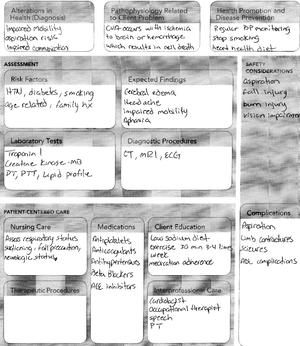 Alterations in
Health (Diagnosis)
Impaired mobility
aspiration risk
Impaired communication
Pathophysiology Related
to Client Problem
CVA occurs with ischemia
to brain or hemorrhage
which results in cell death
Health Promotion and
Disease Prevention
Regular BP monitoring
Stop smoking
heart health diet
ASSESSMENT
SAFETY
CONSIDERATIONS
Risk Factors
HTN, diabetes, smoking
age related, family hx
Expected Findings
Cerebral edema
Headache
Impaired mobility
Aphasia
Aspiration
Fall, injury
burn injury
Vision impairment
Laboratory Tests
Troponin I
Creatine Kinase-MB
PT, PTT, Lipid profile
Diagnostic Procedures
CT, MRI, ECG
PATIENT-CENTERED CARE
Complications
Nursing Care
Assess respiratory status
suctioning, fall precaution,
neurologic status
Medications
Antiplatelets
Anticoagulants
Antihypertensives
Beta Blockers
ACE inhibitors
Client Education
Low sodium diet
exercise 30 min 3-4 times
week
medication adherence
Aspiration
Limb contractures
Seizures
ADL complications
Therapeutic Procedures
Interprofessional Care
Cardiologist
Occupational therapist
speech
PT